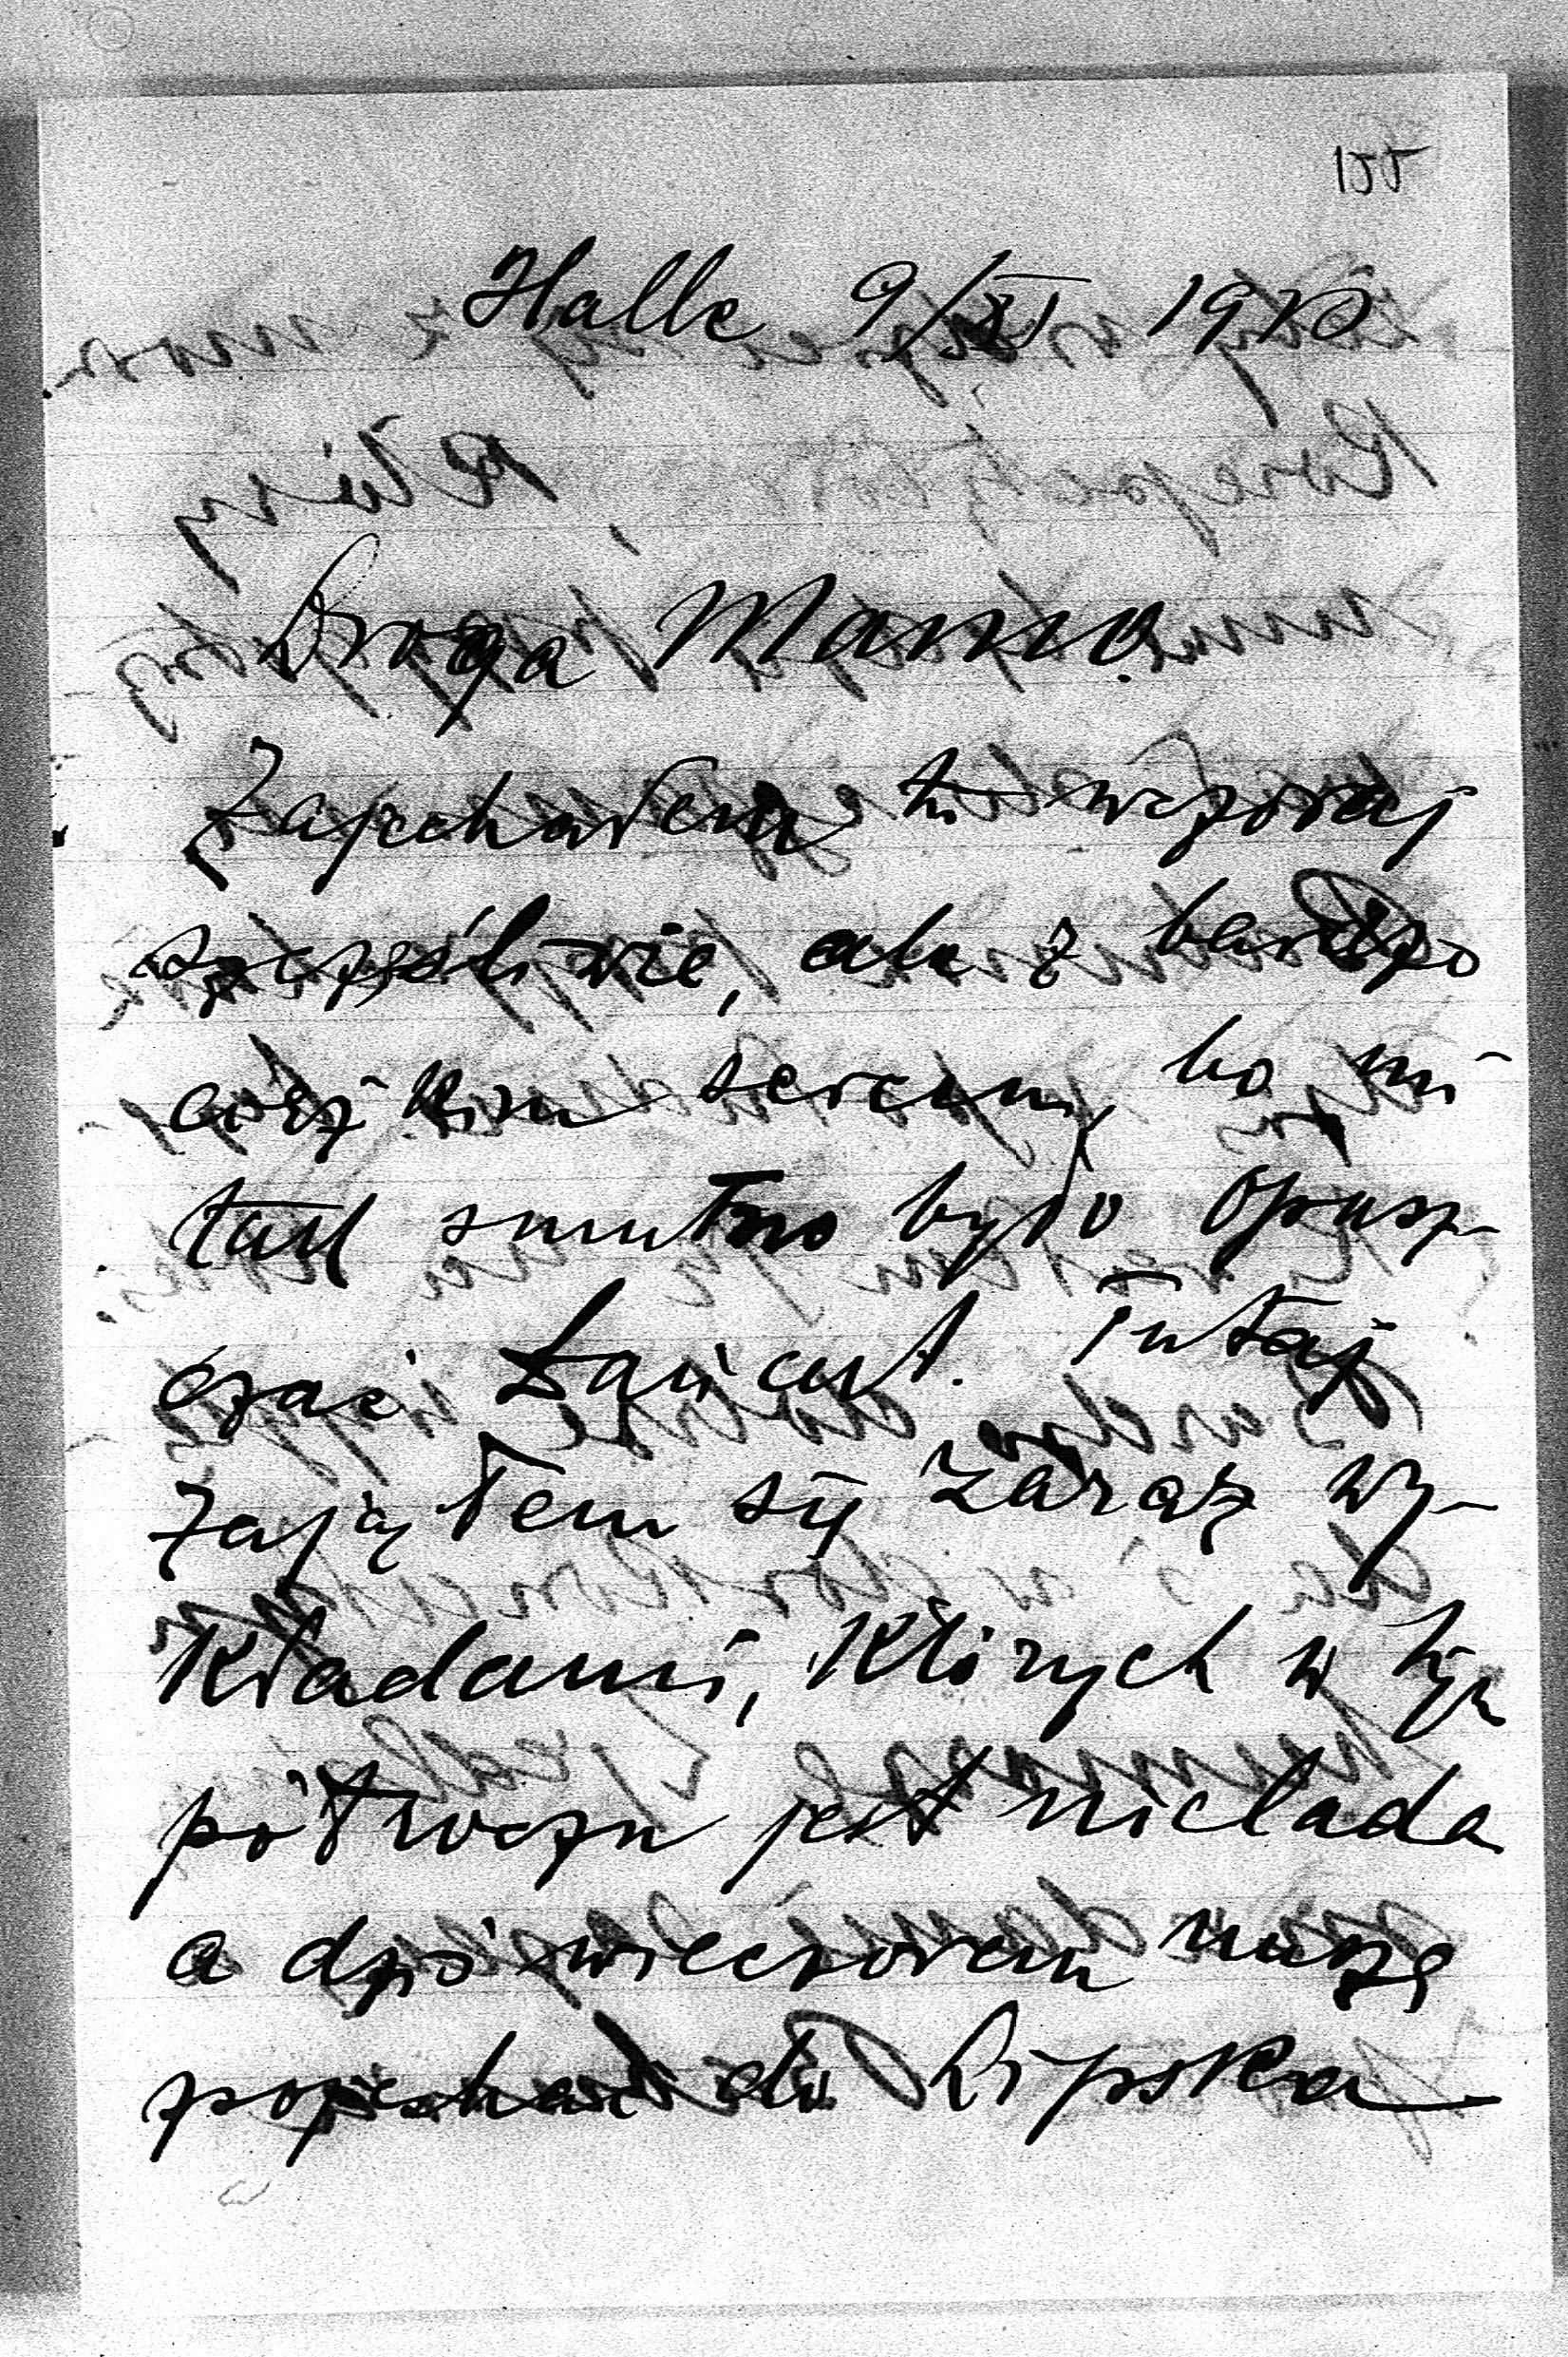 155
Halle 9/XI 19
Droga Mamo.
Zajechałem tu wczoraj
szczęśliwie, ale z bardzo
ciężkim sercem, bo mi
tak smutno było opusz-
czać Łańcut. Tutaj
zająłem się zaraz wy-
kładami, których w tym
półroczu jest nielada
a dziś wieczorem muszę
pojechać do Lipska